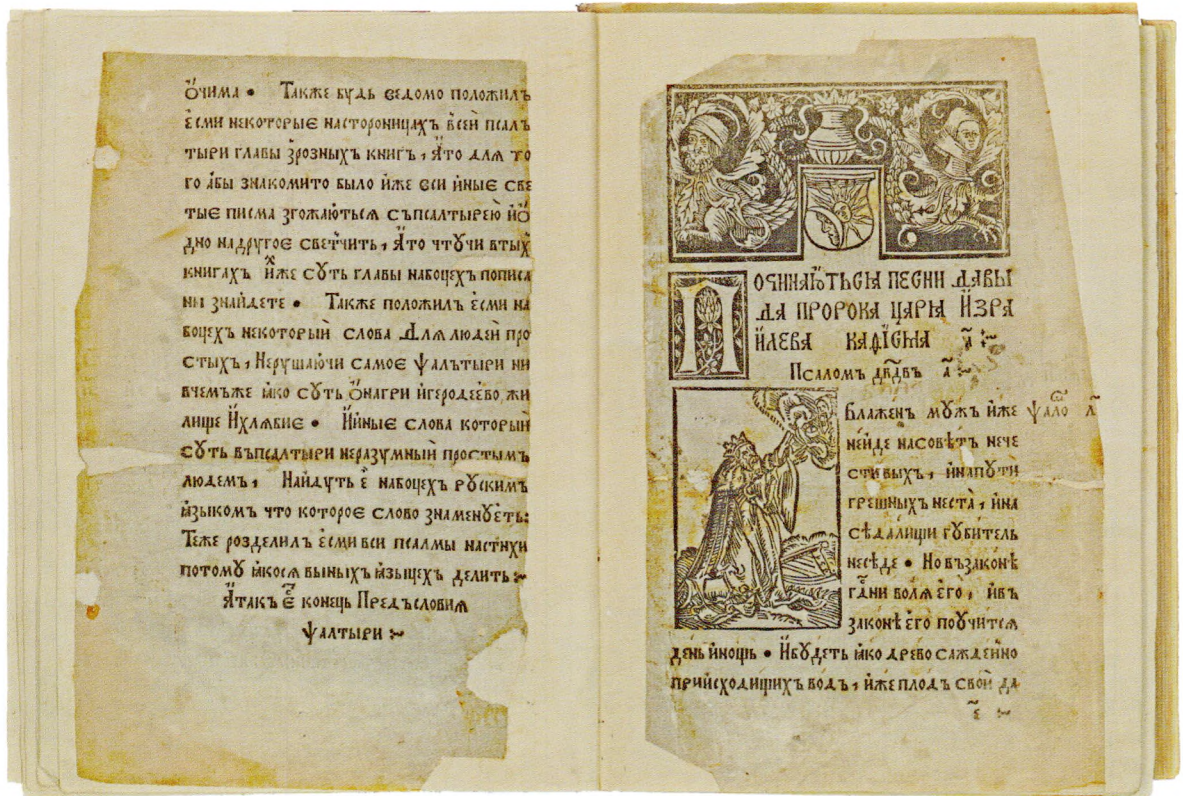 Ѻчима • Также будь ведомо положилъ
есми некоторые настороницахъ всей псалъ
тыри главы зрозныхъ книг, Ато для то
го абы знакомито было иже вси иные све
тые писма згожаються съпсалтырею иѻ
дно надругоє светчить, Ато чтучи втых
книгахъ иже суть главы набоцехъ пописа
ни знайдете • Также положилъ есми на
боцехъ некоторыи слова Для людей про
стыхъ, Нерушаючи самоє ѱалътыри ни
вчемъже ꙗко суть ѻнагри игеродеево жи
лище Ихлѧбие • Ииные слова которыи
суть въпсалтыри неразумныи простымъ
людемъ, Найдуть е набоцехъ руским
ꙗзыком что котороє слово знаменуеть:
Теже розделил есми вси псалмы настихи
потому ꙗкосѧ выныхъ ꙗзыцех делить
Атакъ Е конець Предъсловиꙗ
ѱалтыри
Починаютьсꙗ песни давы
да пророка царꙗ Изра
илева кафисма а҃
Псаломъ дв҃двъ а҃
Блаженъ мужъ иже ѱало а҃
нейде насовѣтъ нече
стивыхъ, инапути
грешныхъ неста, ина
сѣдалищи губитель
несѣде • Новъзаконѣ
гд҃ни волѧ его, ивъ
законѣ его поучитсѧ
день инощь • Ибудеть ꙗко древо сажденно
приисходищихъ водъ, иже плод свой да
е҃